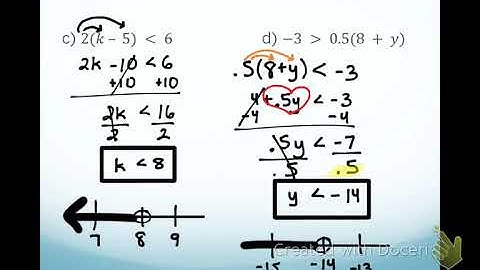 c) 2(k – 5) < 6
2k -10 < 6
+10 +10
2k < 16
2 2
k < 8
7 8 9
d) –3 > 0.5(8 + y)
.5(8+y) < -3
4 + .5y < -3
-4 -4
.5y < -7
.5 .5
y < -14
-15 -14 -13
Created with Doceri